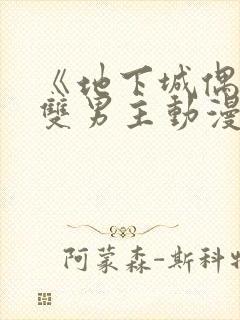 《地下城偶
雙男主動漫
阿蒙森-斯科特